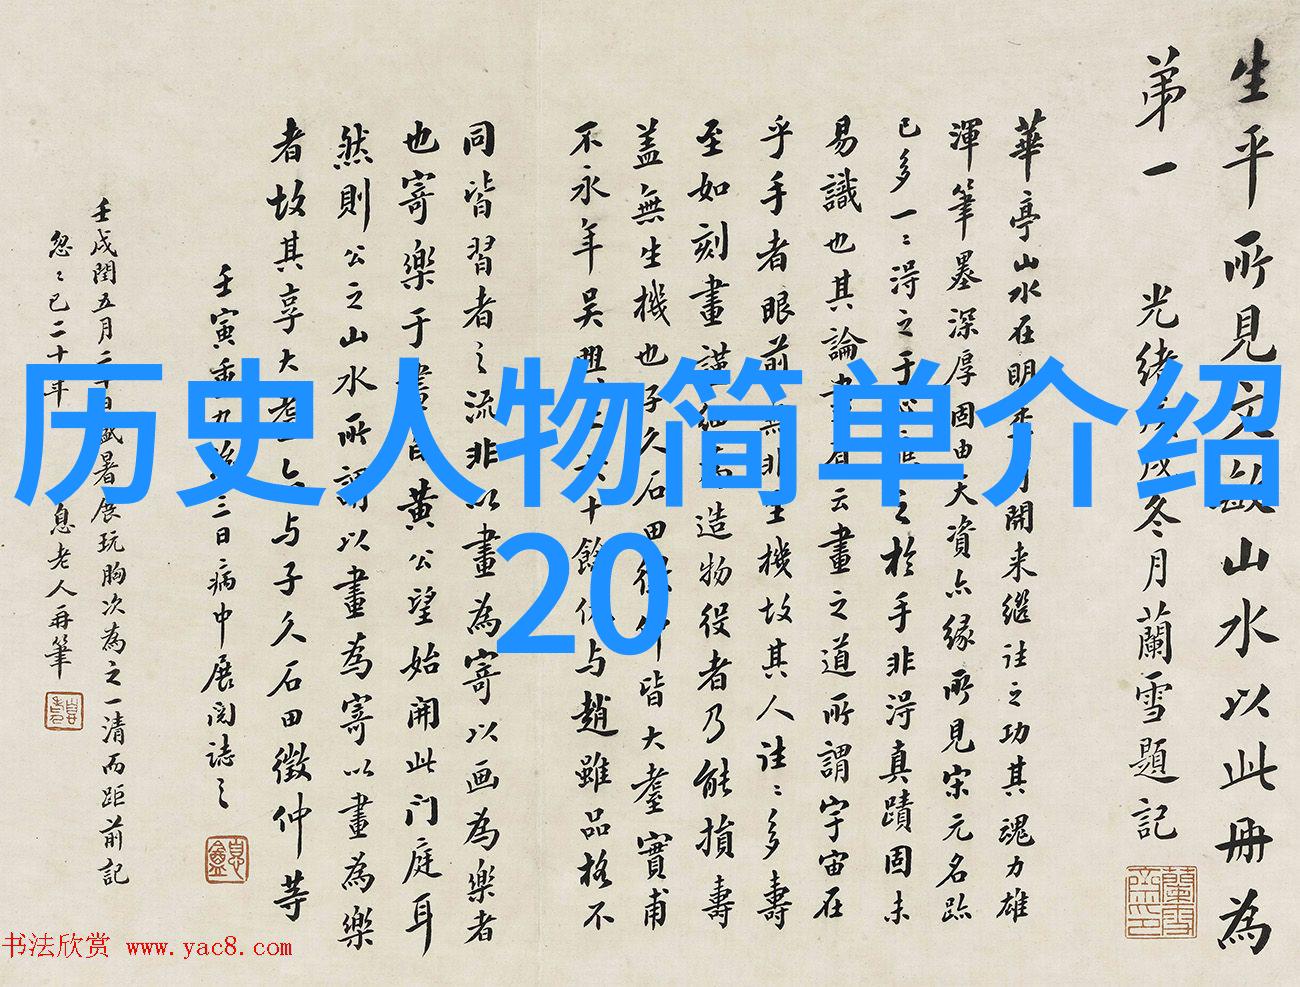 历史人物简单介绍
20
生平所見文敏山水以此冊為
弟一 光緒戊戌冬月蘭雪題記
華亭山水在明季開来繼往之功其魂力雄
渾筆墨深厚固由大資亦緣所見宋元名跡
已多一〻淂之于心應之於手非淂真蹟固未
易識也其論畫者云畫之道所謂宇宙在
乎手者眼前無非生機故其人往〻多壽
至如刻畫謹細為造物役者乃能損壽
蓋無生機也子久石田徵仲皆大耋實甫
不永年吳興止六十餘仇与趙雖品格不
同皆習者之流非以畫為寄以画為樂者
也寄樂于畫自黄公望始開此门庭耳
然則公之山水所謂以畫為寄以畫為樂
者故其享大耋与子久石田徵仲等
壬寅重九後三日病中展閱誌之
壬戌閏五月二十日盛暑展玩胸次為之一清而距前記
忽〻已二十年 息老人再筆
书法欣赏 www.yac8.com